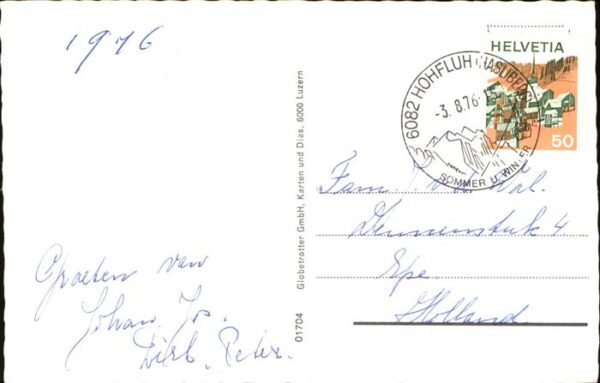 1976
HELVETIA
50
6082 HOHFLUH (HASLIBERG)
-3. 8.76-15
SOMMER U. WINTER
Fam. v.d. Wal.
Dennenstuk 4
Epe.
Holland.
Groeten van
Johan, Jos.
Dirk, Peter.
01704
Globetrotter GmbH, Karten und Dias, 6000 Luzern